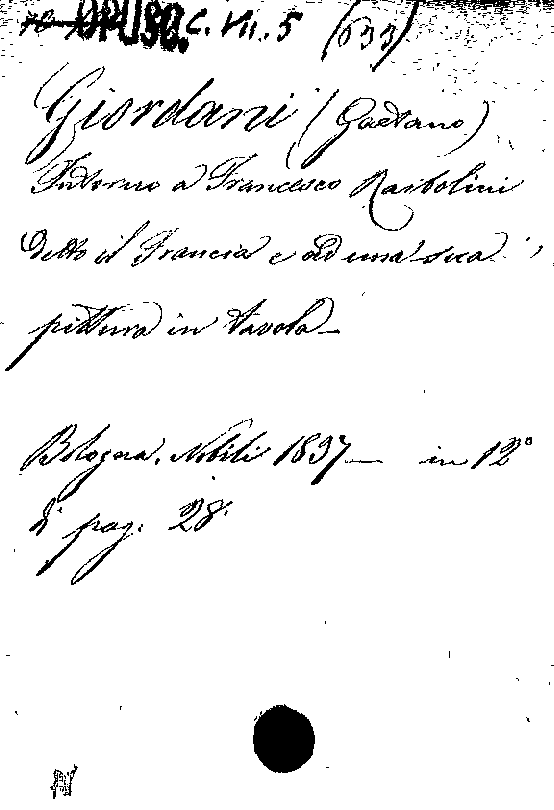 OPUSC. C. VII. 5 (633)
Giordani (Gaetano)
Intorno a Francesco Raibolini
detto il Francia e ad una sua
pittura in tavola
Bologna, Nobili 1837 in 12°
di pag. 28.